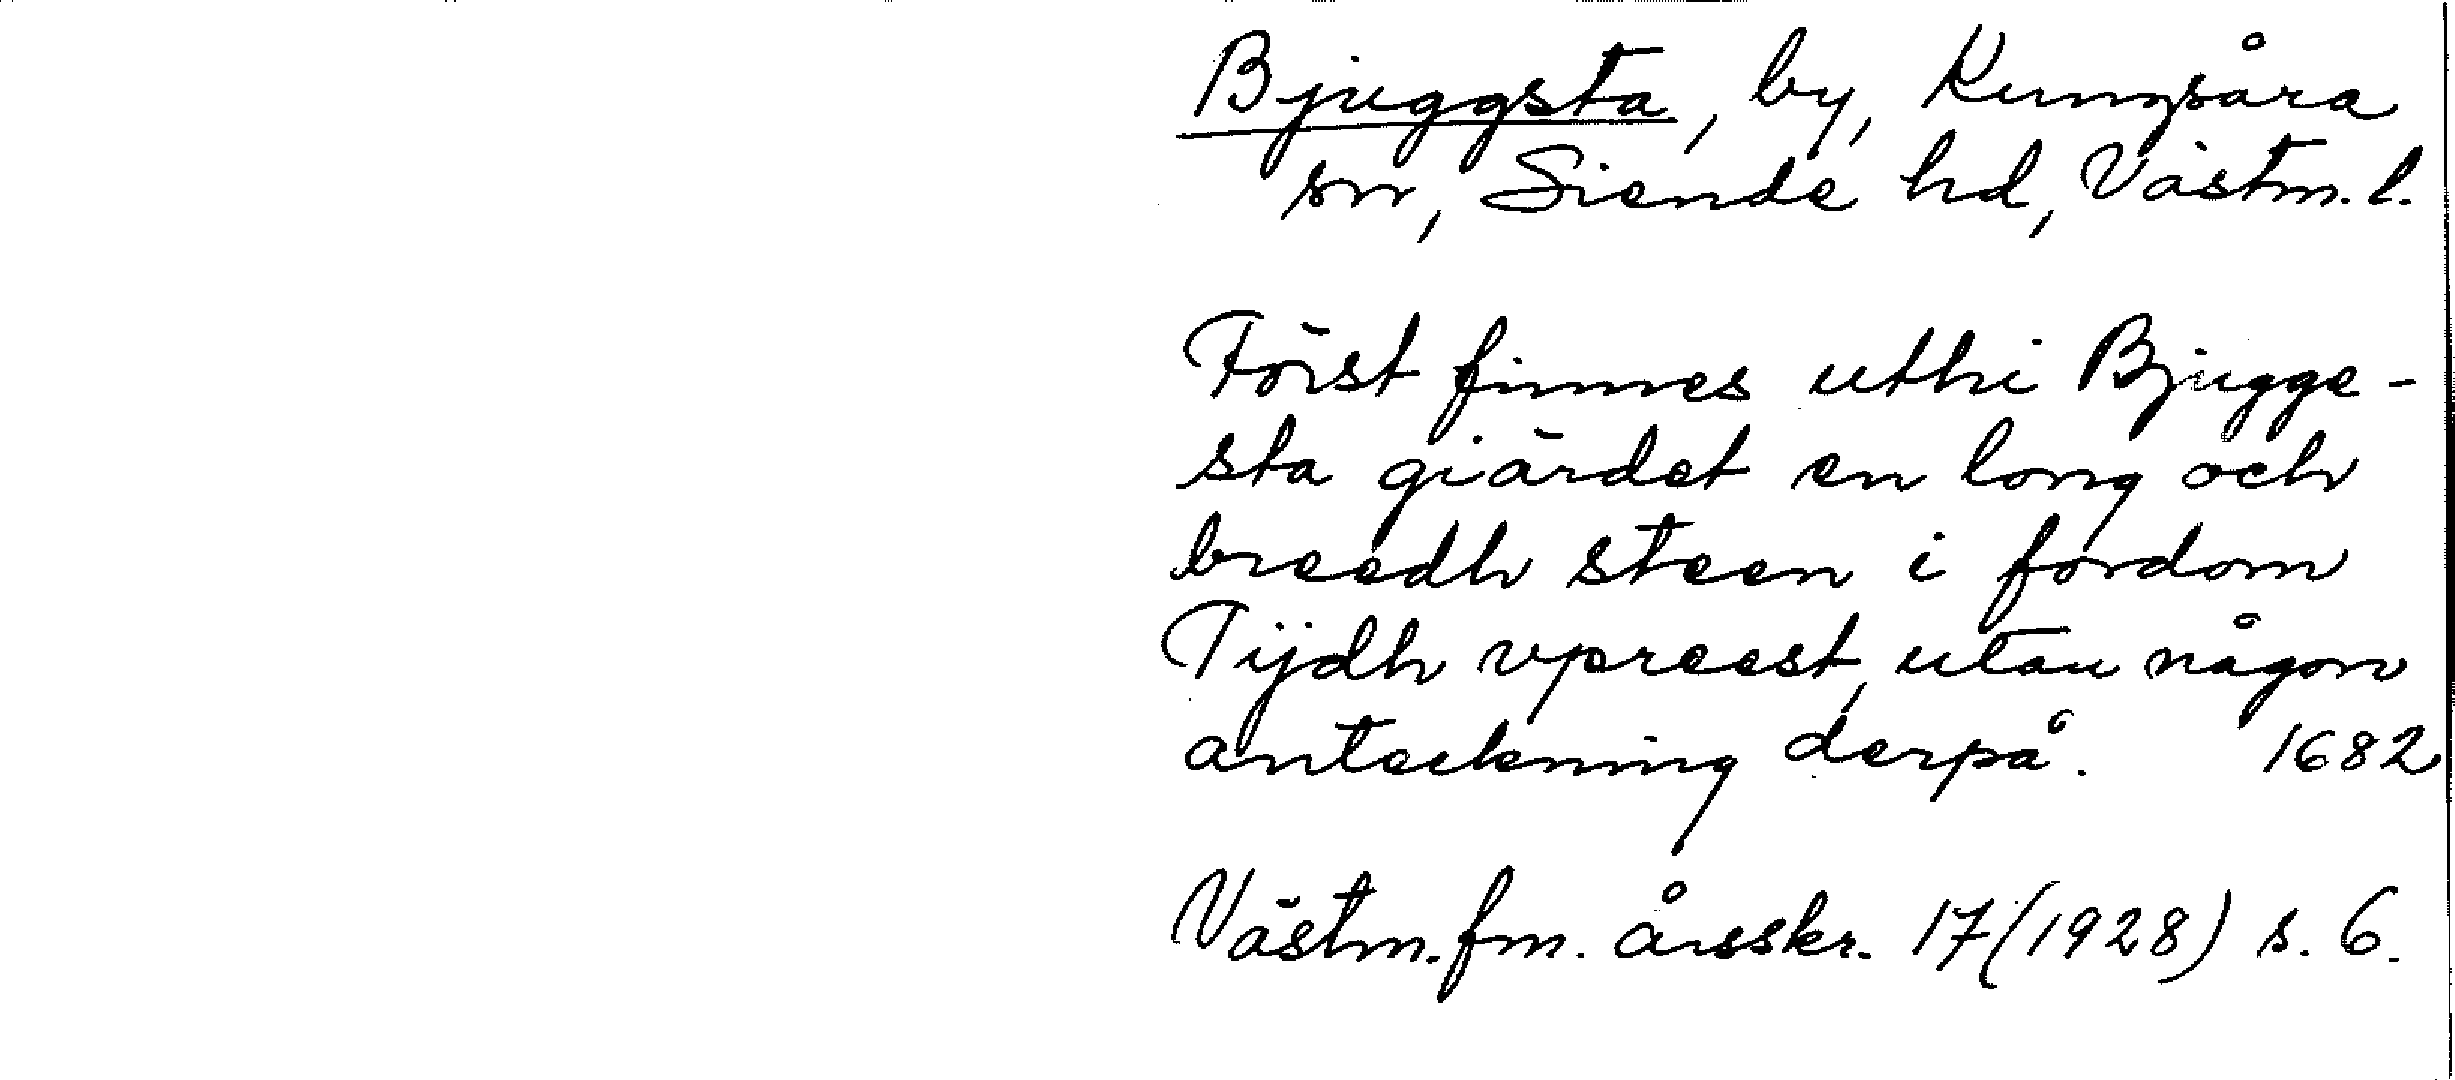 Bjuggsta, by, Kungsåra
sn, Siende hd, Västm. l.
Först finnes uthi Bjugge-
sta giärdet en long och
breedh steen i fordom
Tijdh vpreest, utan någon
anteckning derpå. 1682
Västm. fm. årsskr. 17 (1928) s. 6.